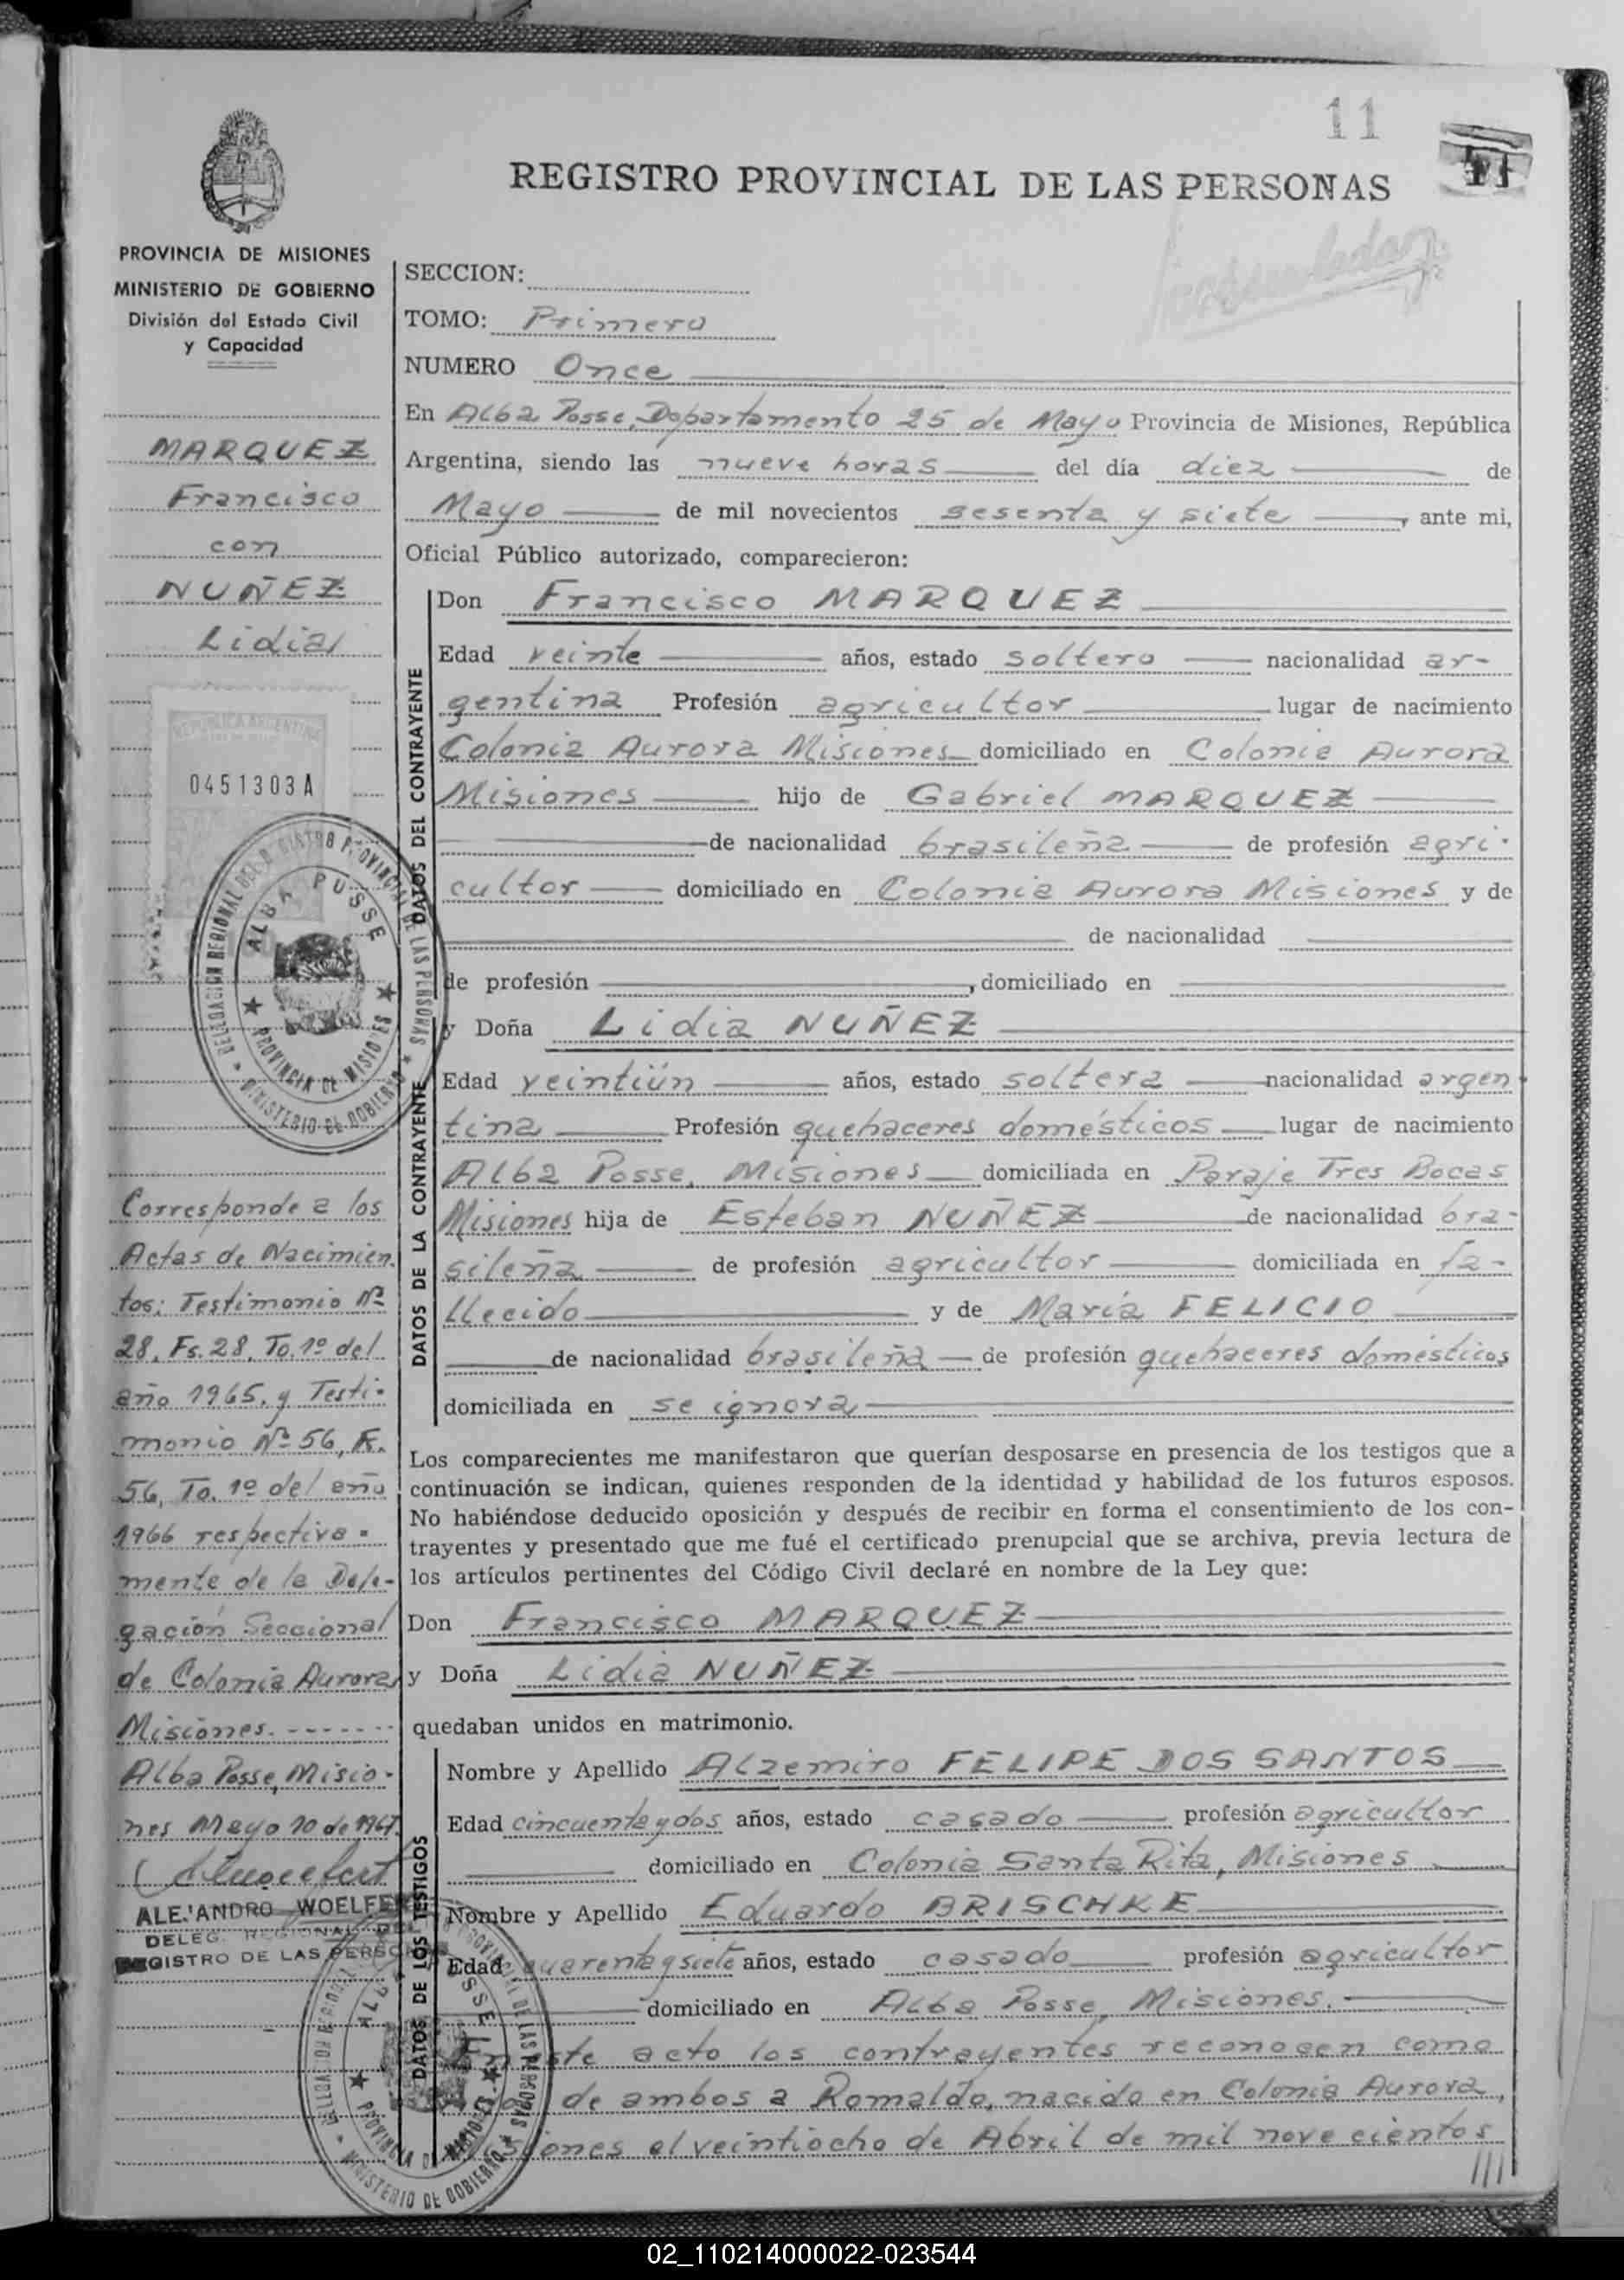 11
11
REGISTRO PROVINCIAL DE LAS PERSONAS
PROVINCIA DE MISIONES
MINISTERIO DE GOBIERNO
División del Estado Civil
y Capacidad
MARQUEZ
Francisco
con
NUÑEZ
Lidia
REPUBLICA ARGENTINA
0451303A
DELEGACION REGIONAL DEL REGISTRO PROVINCIAL DE LAS PERSONAS
ALBA POSSE
PROVINCIA DE MISIONES
MINISTERIO DE GOBIERNO
Corresponde a los
Actas de Nacimien
tos: Testimonio Nº
28, Fs. 28, To. 1º del
año 1965, y Testi-
monio Nº 56, F.
56, To. 1º del año
1966 respectiva-
mente de la Dele-
gación Seccional
de Colonia Aurora,
Misiones.-------
Alba Posse, Misio-
nes Mayo 10 de 1967.
ALEJANDRO WOELFERT
DELEG. REGIONAL DEL
REGISTRO DE LAS PERSONAS
SECCION:
TOMO: Primero
NUMERO Once
En Alba Posse, Departamento 25 de Mayo Provincia de Misiones, República
Argentina, siendo las nueve horas del día diez de
Mayo de mil novecientos sesenta y siete, ante mi,
Oficial Público autorizado, comparecieron:
DATOS DEL CONTRAYENTE
Don Francisco MARQUEZ
Edad veinte años, estado soltero nacionalidad ar-
gentina Profesión agricultor lugar de nacimiento
Colonia Aurora Misiones domiciliado en Colonia Aurora
Misiones hijo de Gabriel MARQUEZ
de nacionalidad brasileña de profesión agri-
cultor domiciliado en Colonia Aurora Misiones y de
de nacionalidad
de profesión , domiciliado en
DATOS DE LA CONTRAYENTE
y Doña Lidia NUÑEZ
Edad veintiún años, estado soltera nacionalidad argen
tina Profesión quehaceres domésticos lugar de nacimiento
Alba Posse, Misiones domiciliada en Paraje Tres Bocas
Misiones hija de Esteban NUÑEZ de nacionalidad bra-
sileña de profesión agricultor domiciliada en fa-
llecido y de María FELICIO
de nacionalidad brasileña de profesión quehaceres domésticos
domiciliada en se ignora
Los comparecientes me manifestaron que querían desposarse en presencia de los testigos que a
continuación se indican, quienes responden de la identidad y habilidad de los futuros esposos.
No habiéndose deducido oposición y después de recibir en forma el consentimiento de los con-
trayentes y presentado que me fué el certificado prenupcial que se archiva, previa lectura de
los artículos pertinentes del Código Civil declaré en nombre de la Ley que:
Don Francisco MARQUEZ
y Doña Lidia NUÑEZ
quedaban unidos en matrimonio.
DATOS DE LOS TESTIGOS
Nombre y Apellido Alzemiro FELIPE DOS SANTOS
Edad cincuenta y dos años, estado casado profesión agricultor
domiciliado en Colonia Santa Rita, Misiones
Nombre y Apellido Eduardo BRISCHKE
Edad cuarenta y siete años, estado casado profesión agricultor
domiciliado en Alba Posse, Misiones.
En este acto los contrayentes reconocen como
de ambos a Romaldo, nacido en Colonia Aurora,
Misiones el veintiocho de Abril de mil novecientos
///
02_110214000022-023544